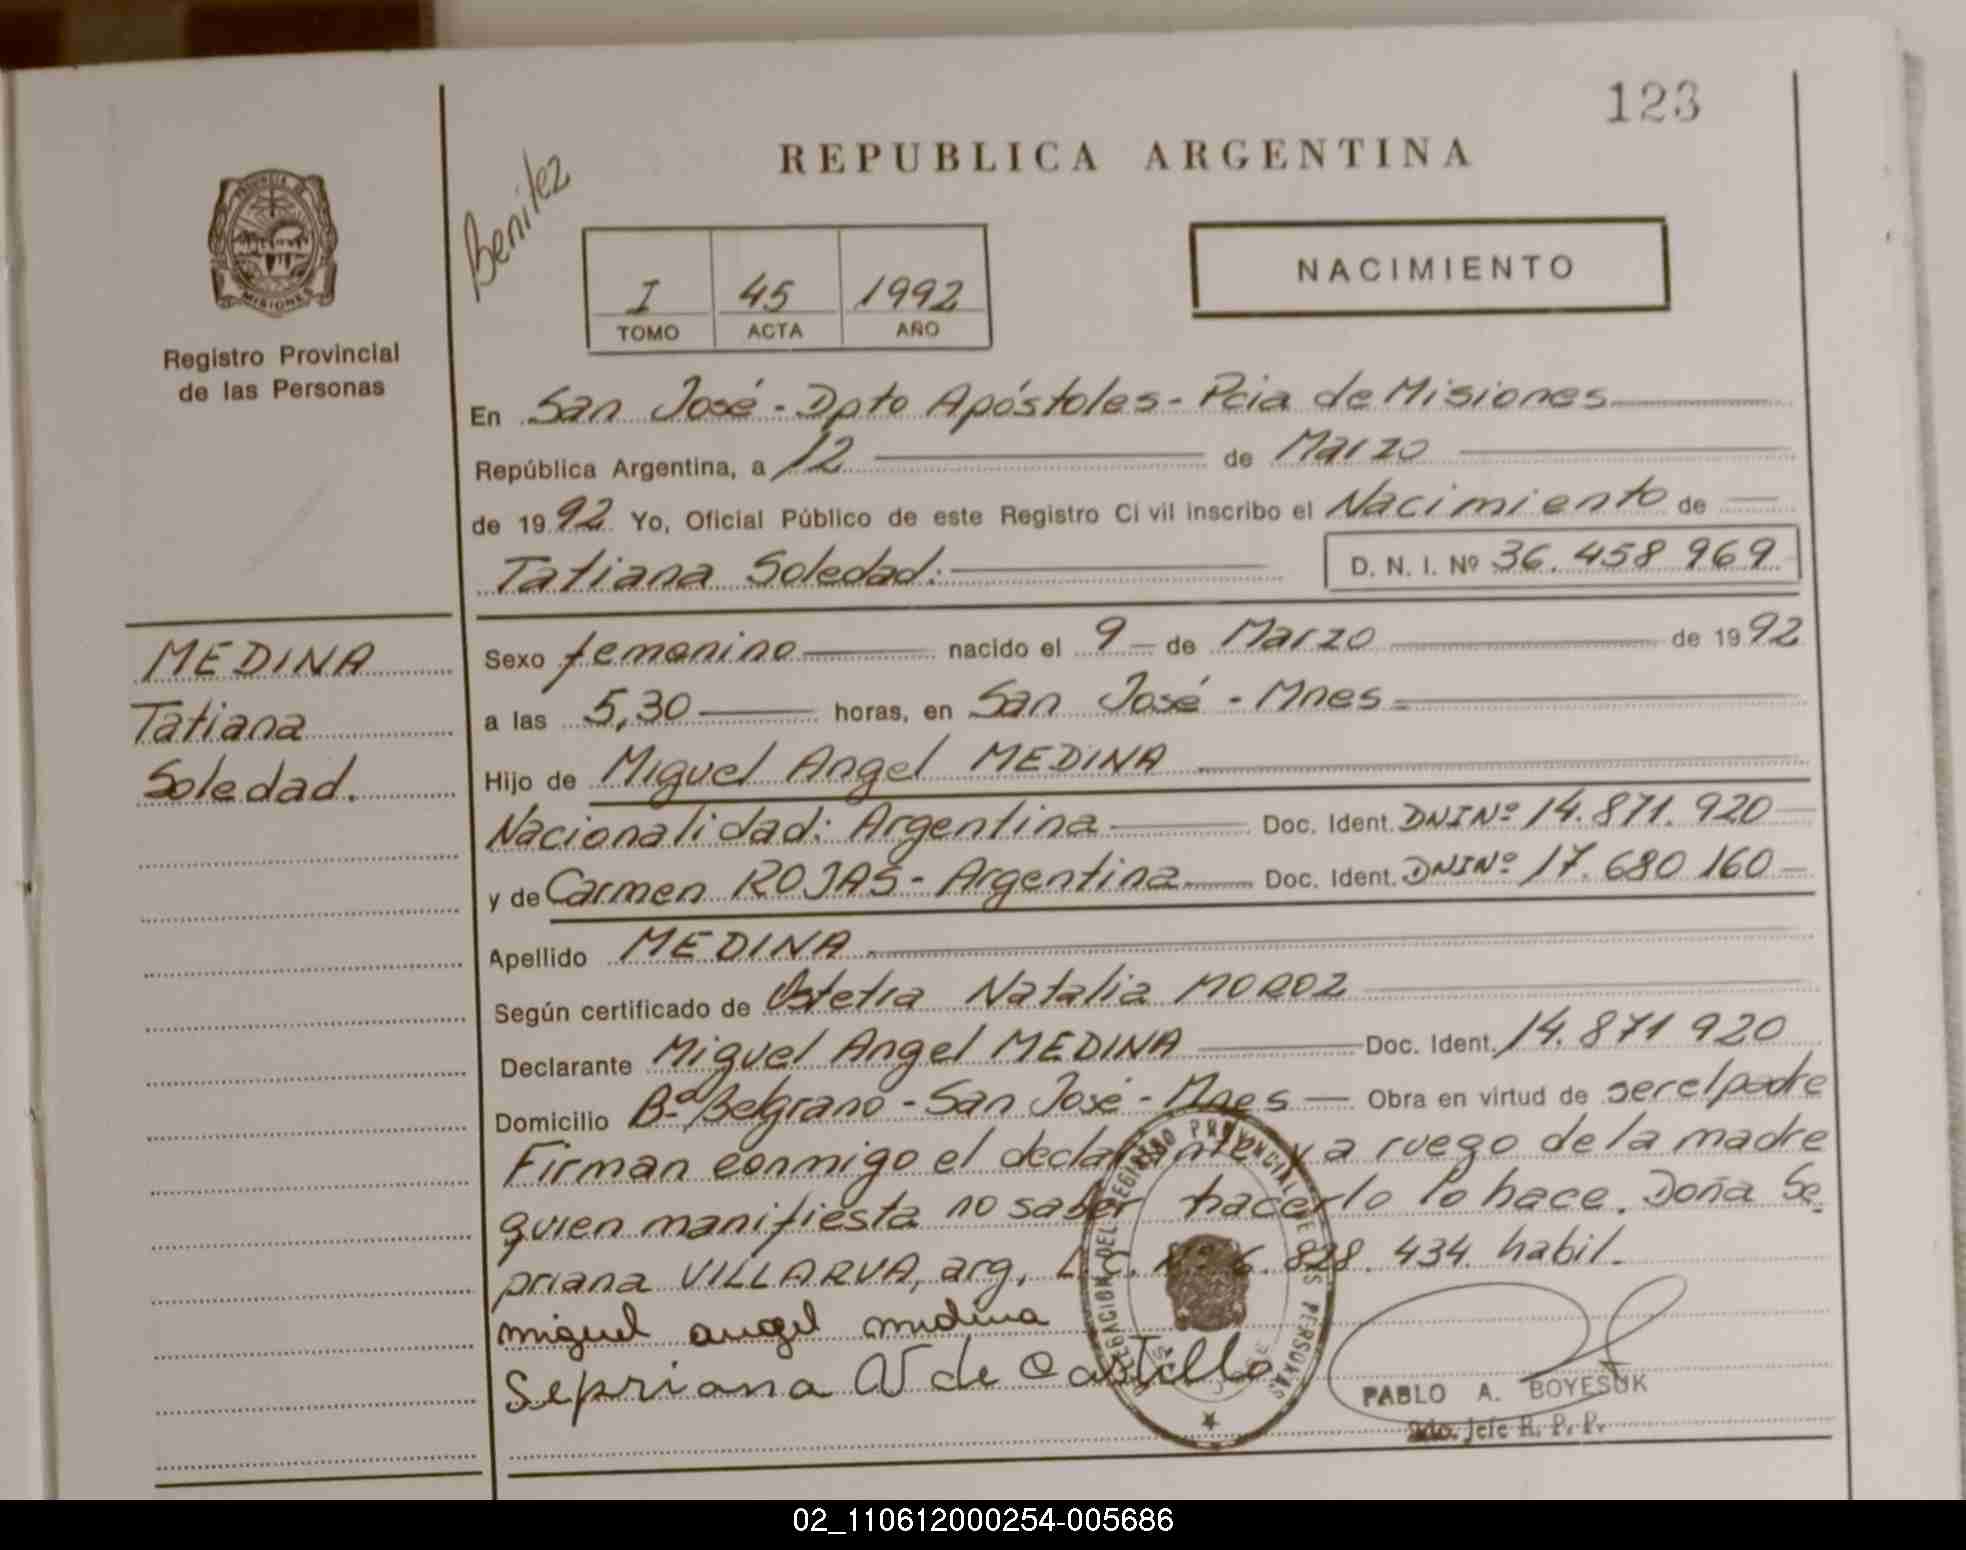 123
REPUBLICA ARGENTINA
PROVINCIA DE
MISIONES
Registro Provincial
de las Personas
Benitez
I 45 1992
TOMO ACTA AÑO
NACIMIENTO
En San José - Dpto Apóstoles - Pcia de Misiones
República Argentina, a 12 de Marzo
de 1992 Yo, Oficial Público de este Registro Civil inscribo el Nacimiento de
Tatiana Soledad. D. N. I. Nº 36.458 969
MEDINA
Tatiana
Soledad.
Sexo femenino nacido el 9 de Marzo de 1992
a las 5,30 horas, en San José - Mnes
Hijo de Miguel Angel MEDINA
Nacionalidad: Argentina Doc. Ident. DNI Nº 14.871.920
y de Carmen ROJAS - Argentina Doc. Ident. DNI Nº 17.680 160
Apellido MEDINA
Según certificado de Ostetra Natalia MOROZ
Declarante Miguel Angel MEDINA Doc. Ident. 14.871 920
Domicilio Bº Belgrano - San José - Mnes Obra en virtud de ser el padre
Firman conmigo el declarante y a ruego de la madre
quien manifiesta no saber hacerlo lo hace. Doña Se
priana VILLARVA, arg, L.C. Nº 6.828.434 habil.
miguel angel medina
Sepriana V de Castillo
DELEGACION DEL REGISTRO PROVINCIAL DE LAS PERSONAS
PABLO A. BOYESUK
2do. Jefe R. P. P.
02_110612000254-005686